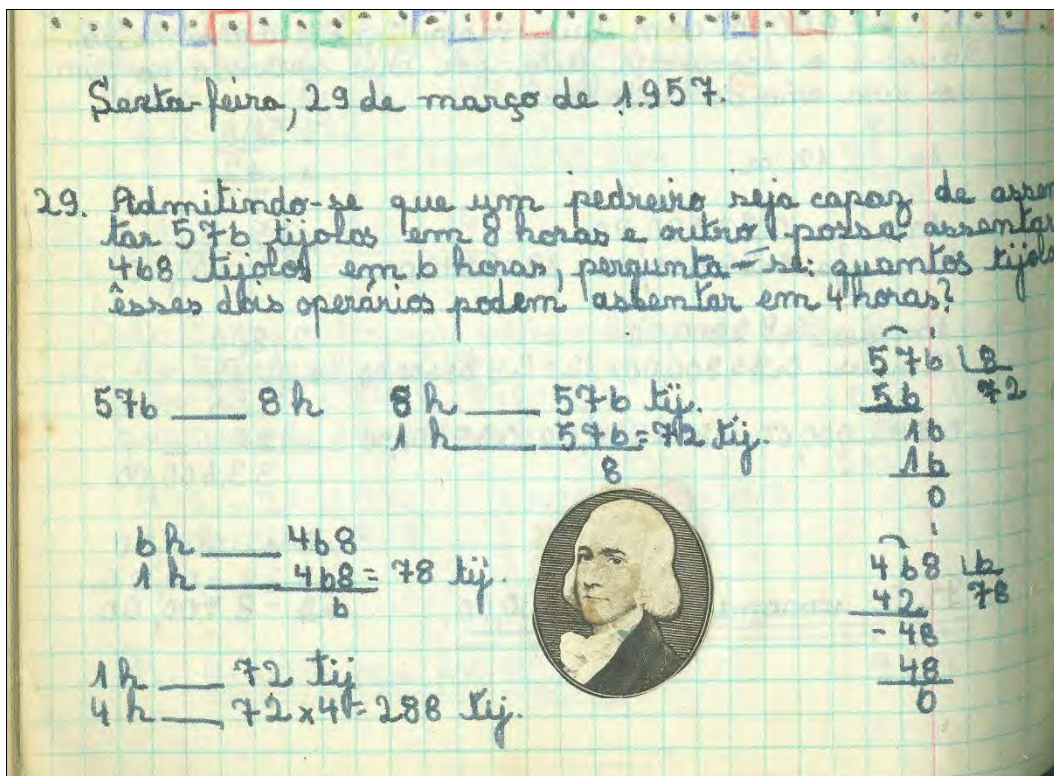 Sexta-feira, 29 de março de 1.957.
29. Admitindo-se que um pedreiro seja capaz de assen
tar 576 tijolos em 8 horas e outro possa assentar
468 tijolos em 6 horas, pergunta-se: quantos tijolo
êsses dois operários podem assentar em 4 horas?
576 ___ 8 h
8 h ___ 576 tij.
1 h ___ 576 = 72 tij.
8
576 8
56 72
16
16
0
6 h ___ 468
1 h ___ 468 = 78 tij.
6
468 6
42 78
- 48
48
0
1 h ___ 72 tij
4 h ___ 72 x 4 = 288 tij.